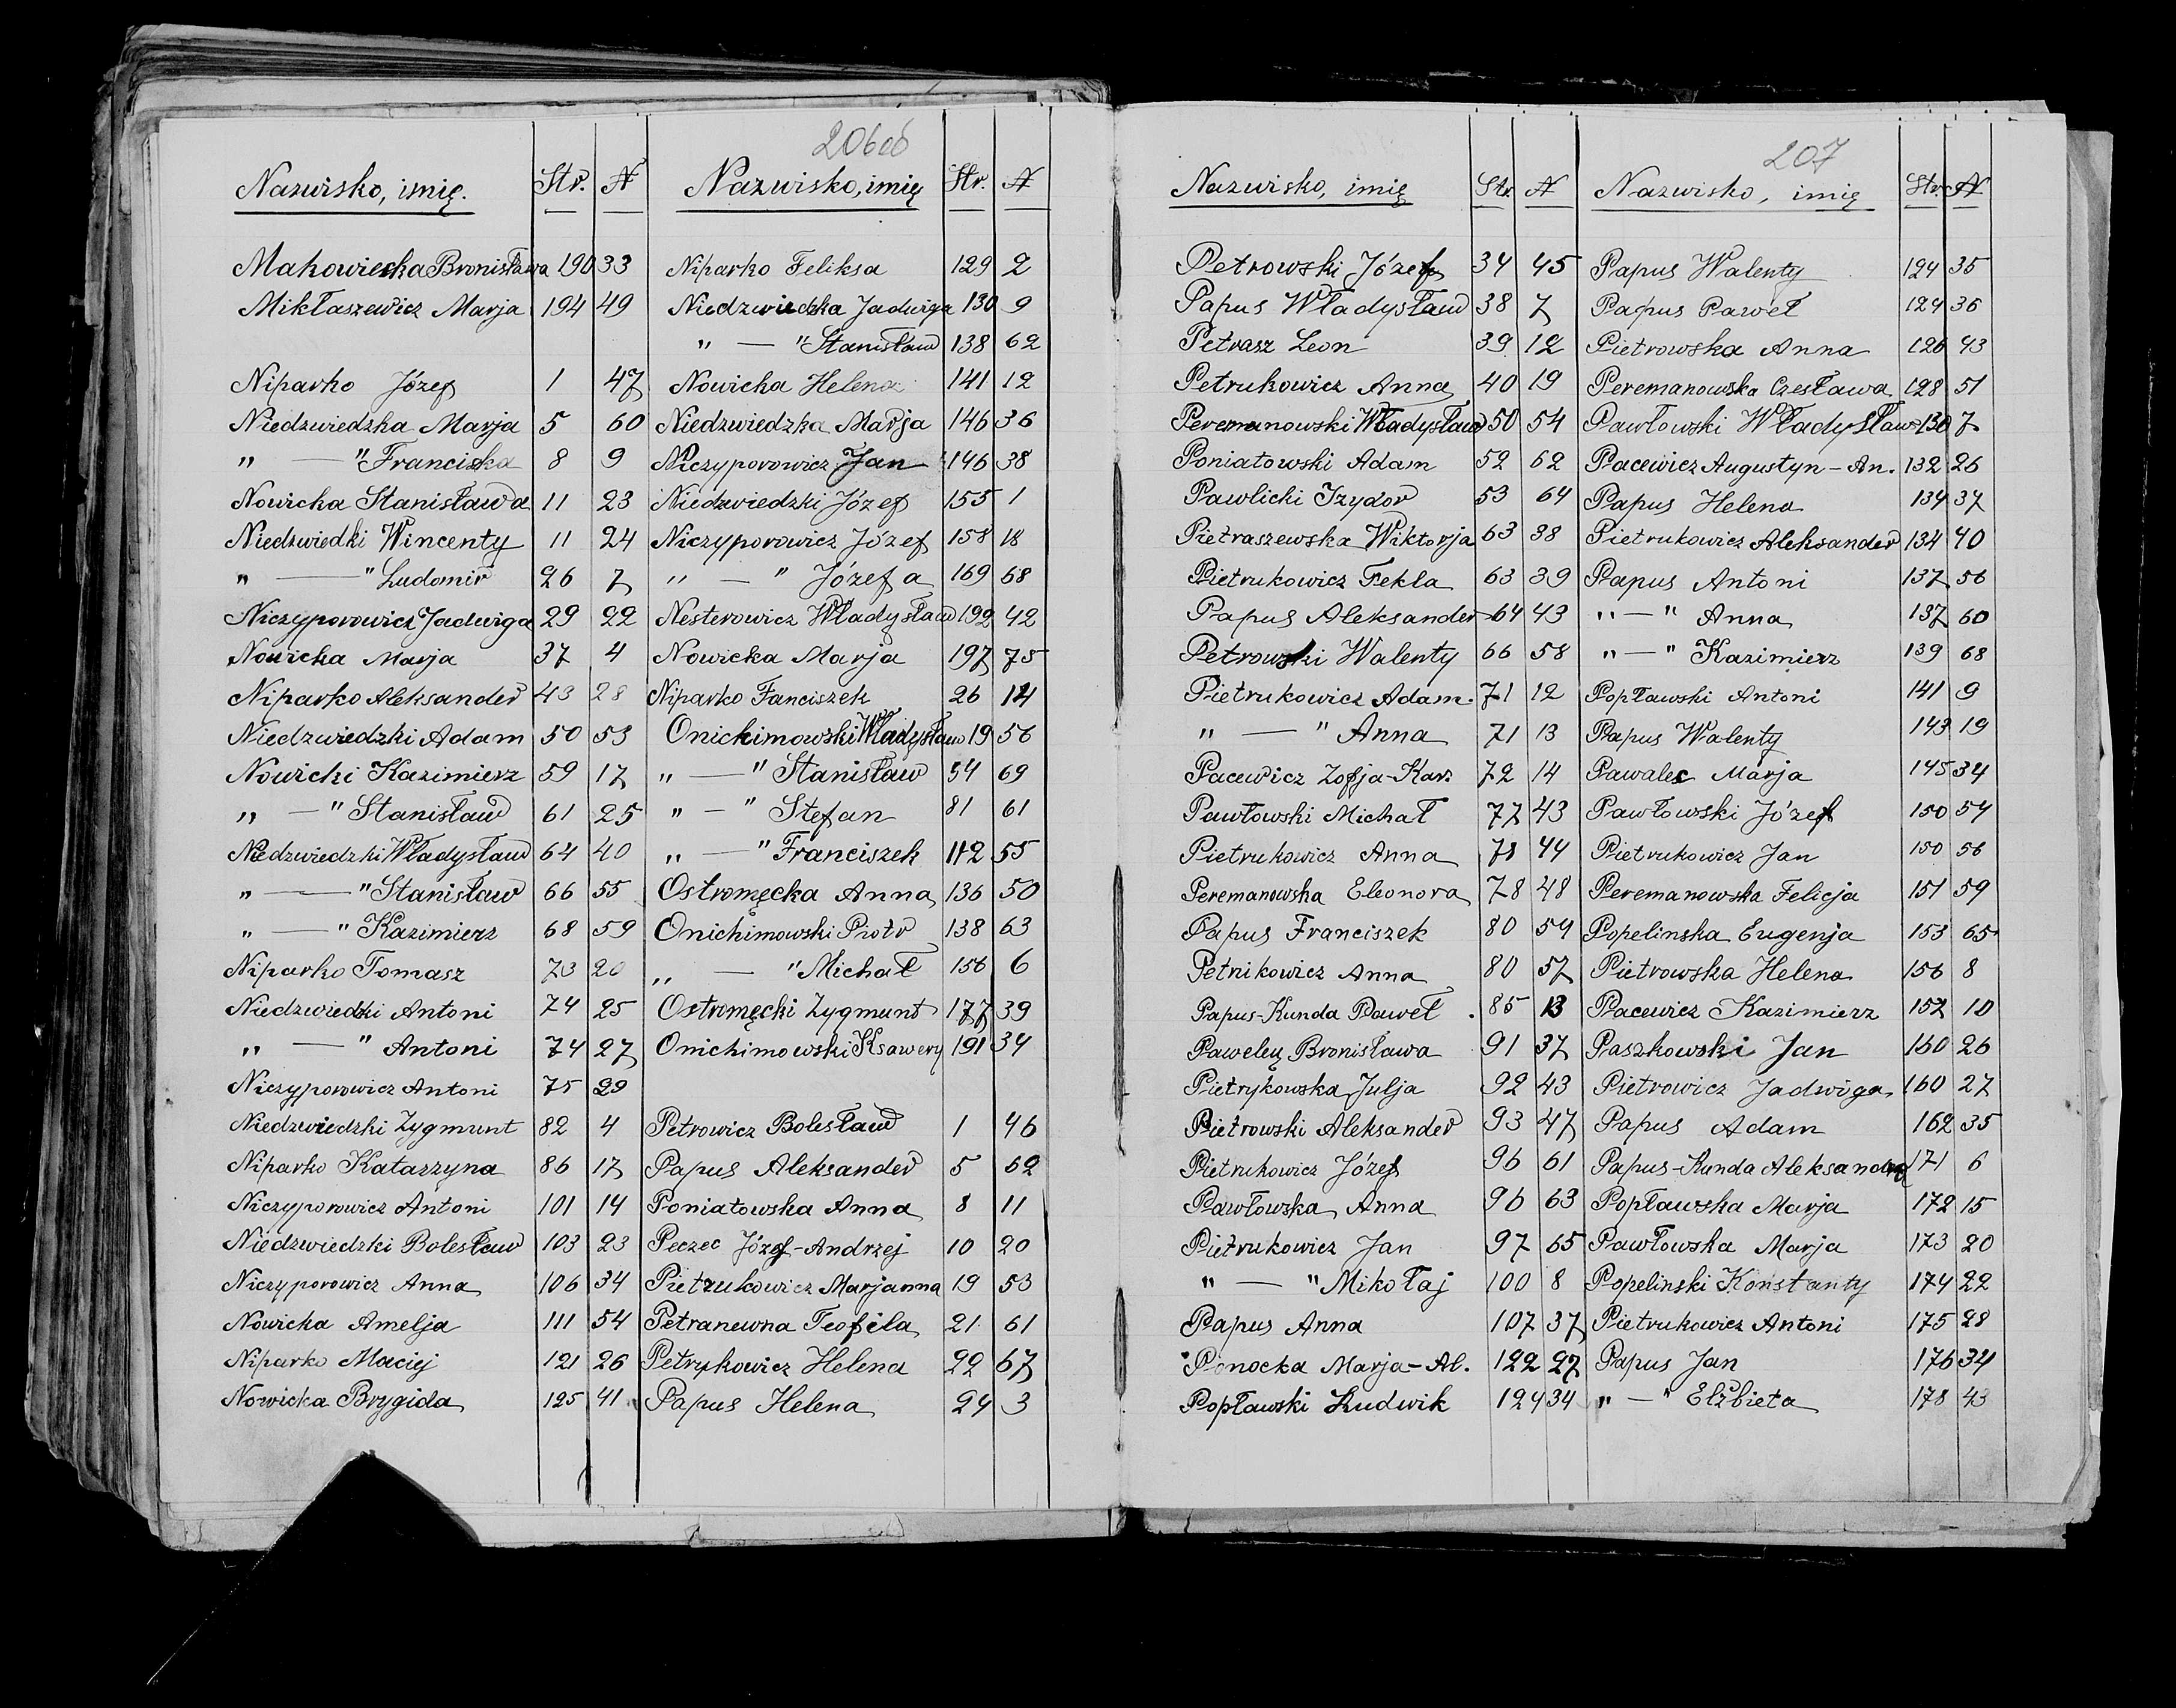 206об
Nazwisko, imię. Str. N
Makowiecka Bronisława 190 33
Mikłaszewicz Marja 194 49
Niparko Józef 1 47
Niedzwiedzka Marja 5 60
" — " Franciszka 8 9
Nowicka Stanisława 11 23
Niedzwiedki Wincenty 11 24
" — " Ludomir 26 7
Niczyporowicz Jadwiga 29 22
Nowicka Marja 37 4
Niparko Aleksander 43 28
Niedzwiedzki Adam 50 53
Nowicki Kazimierz 59 17
" — " Stanisław 61 25
Niedzwiedzki Władysław 64 40
" — " Stanisław 66 55
" — " Kazimierz 68 59
Niparko Tomasz 73 20
Niedzwiedzki Antoni 74 25
" — " Antoni 74 27
Niczyporowicz Antoni 75 29
Niedzwiedzki Zygmunt 82 4
Niparko Katarzyna 86 17
Niczyporowicz Antoni 101 14
Niedzwiedzki Bolesław 103 23
Niczyporowicz Anna 106 34
Nowicka Amelja 111 54
Niparko Maciej 121 26
Nowicka Brygida 125 41
Nazwisko, imię Str. N
Niparko Feliksa 129 2
Niedzwiedzka Jadwiga 130 9
" — " Stanisław 138 62
Nowicka Helena 141 12
Niedzwiedzka Marja 146 36
Niczyporowicz Jan 146 38
Niedzwiedzki Józef 155 1
Niczyporowicz Józef 158 18
" — " Józefa 169 68
Nesterowicz Władysław 192 42
Nowicka Marja 197 75
Niparko Fanciszek 26 14
Onichimowski Władysław 19 56
" — " Stanisław 54 69
" — " Stefan 81 61
" — " Franciszek 112 55
Ostromęcka Anna 136 50
Onichimowski Piotr 138 63
" — " Michał 156 6
Ostromęcki Zygmunt 177 39
Onichimowski Ksawery 191 34
Petrowicz Bolesław 1 46
Papus Aleksander 5 62
Poniatowska Anna 8 11
Peczec Józef-Andrzej 10 20
Pietrukowicz Marjanna 19 53
Petranewna Teofila 21 61
Petrykowicz Helena 22 67
Papus Helena 24 3
207
Nazwisko, imię Str. N
Petrowski Józef 34 45
Papus Władysław 38 7
Petrasz Leon 39 12
Petrukowicz Anna 40 19
Peremanowski Władysław 50 54
Poniatowski Adam 52 62
Pawlicki Izydor 53 64
Pietraszewska Wiktorja 63 38
Pietrukowicz Tekla 63 39
Papus Aleksander 64 43
Petrowski Walenty 66 58
Pietrukowicz Adam 71 12
" — " Anna 71 13
Pacewicz Zofja-Karz 72 14
Pawłowski Michał 77 43
Pietrukowicz Anna 78 44
Peremanowska Eleonora 78 48
Papus Franciszek 80 54
Petnikowicz Anna 80 57
Papus-Kunda Paweł 85 13
Pawelę Bronisława 91 37
Pietrykowska Julja 92 43
Pietrowski Aleksander 93 47
Pietrukowicz Józef 96 61
Pawłowska Anna 96 63
Pietrukowicz Jan 97 65
" — " Mikołaj 100 8
Papus Anna 107 37
Ponocka Marja-Al. 122 27
Popławski Ludwik 124 34
Nazwisko, imię Str. N
Papus Walenty 124 35
Papus Paweł 124 36
Pietrowska Anna 126 43
Peremanowska Czesława 128 51
Pawłowski Władysław 130 7
Pacewicz Augustyn-An. 132 26
Papus Helena 134 37
Pietrukowicz Aleksander 134 40
Papus Antoni 137 56
" — " Anna 137 60
" — " Kazimierz 139 68
Popławski Antoni 141 9
Papus Walenty 143 19
Pawalec Marja 145 34
Pawłowski Józef 150 54
Pietrukowicz Jan 150 56
Peremanowska Felicja 151 59
Popelinska Eugenja 153 65
Pietrowska Helena 156 8
Pacewicz Kazimierz 157 10
Paszkowski Jan 160 26
Pietrowicz Jadwiga 160 27
Papus Adam 162 35
Papus-Kunda Aleksandra 171 6
Popławska Marja 172 15
Pawłowska Marja 173 20
Popelinski Konstanty 174 22
Pietrukowicz Antoni 175 28
Papus Jan 176 34
" — " Elżbieta 178 43